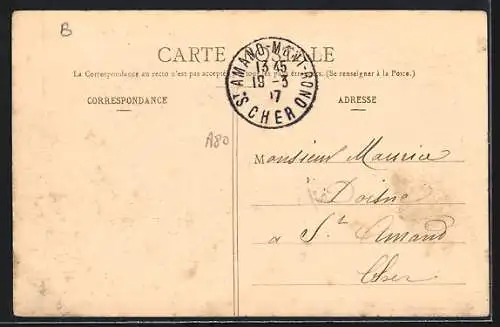 B
CARTE POSTALE
La Correspondance au recto n'est pas acceptée par tous les pays étrangers. (Se renseigner à la Poste.)
ST AMAND-MONT-ROND
13 45
19 - 3
17
CHER
CORRESPONDANCE
ADRESSE
A80
Monsieur Maurice
Doisne
a St Amand
Cher